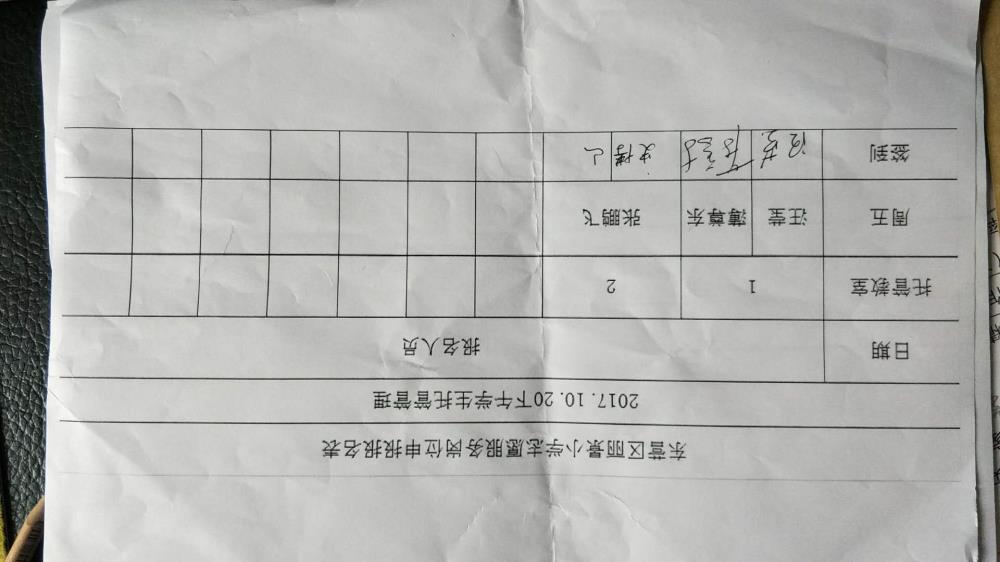 东营区丽景小学志愿服务岗位申报报名表
2017.10.20下午学生托管管理
日期 报名人员
托管教室 1 2
周五 汪莹 薄尊东 张鹏飞
签到